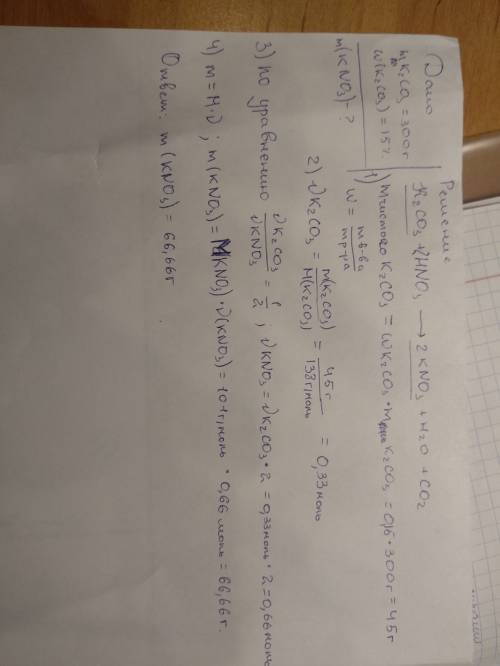 Дано
m K₂CO₃ = 300г
w(K₂CO₃) = 15%
m(KNO₃)-?
Решение
K₂CO₃ + 2HNO₃ → 2KNO₃ + H₂O + CO₂
1) m чистого K₂CO₃ = wK₂CO₃ · m K₂CO₃ = 0,15 · 300г = 45г
w = m в-ва / m р-ра
2) νK₂CO₃ = m(K₂CO₃) / M(K₂CO₃) = 45г / 138г/моль = 0,33 моль
3) по уравнению νK₂CO₃ / νKNO₃ = 1/2 ; νKNO₃ = νK₂CO₃ · 2 = 0,33 моль · 2 = 0,66 моль
4) m = M·ν ; m(KNO₃) = M(KNO₃) · ν(KNO₃) = 101г/моль · 0,66 моль = 66,66г.
Ответ: m(KNO₃) = 66,66г